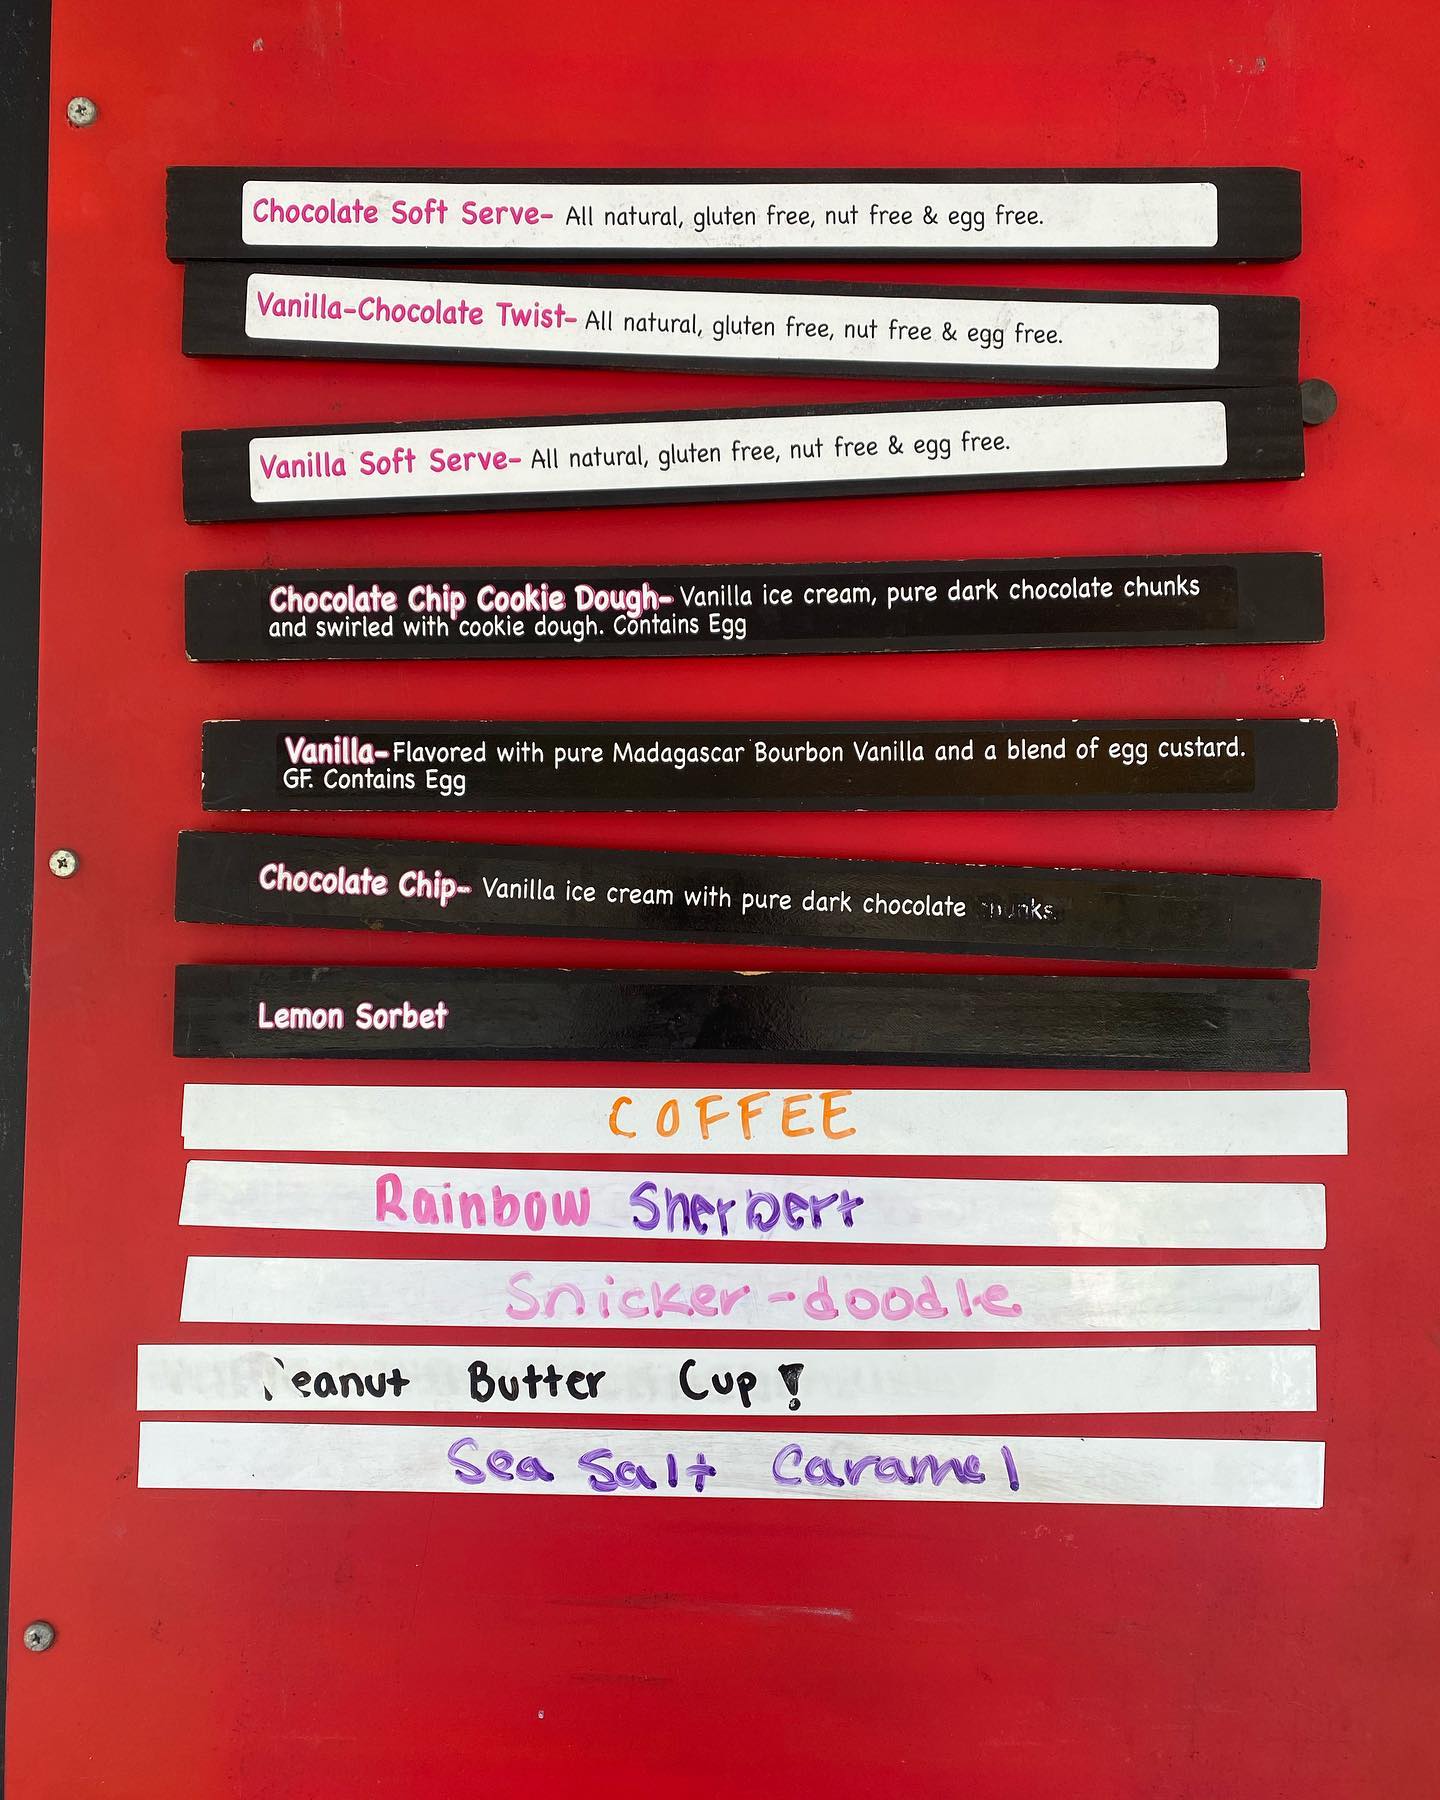 Chocolate Soft Serve- All natural, gluten free, nut free & egg free.
Vanilla-Chocolate Twist- All natural, gluten free, nut free & egg free.
Vanilla Soft Serve- All natural, gluten free, nut free & egg free.
Chocolate Chip Cookie Dough- Vanilla ice cream, pure dark chocolate chunks
and swirled with cookie dough. Contains Egg
Vanilla- Flavored with pure Madagascar Bourbon Vanilla and a blend of egg custard.
GF. Contains Egg
Chocolate Chip- Vanilla ice cream with pure dark chocolate chunks
Lemon Sorbet
COFFEE
Rainbow Sherbert
Snicker-doodle
Peanut Butter Cup!
Sea Salt Caramel